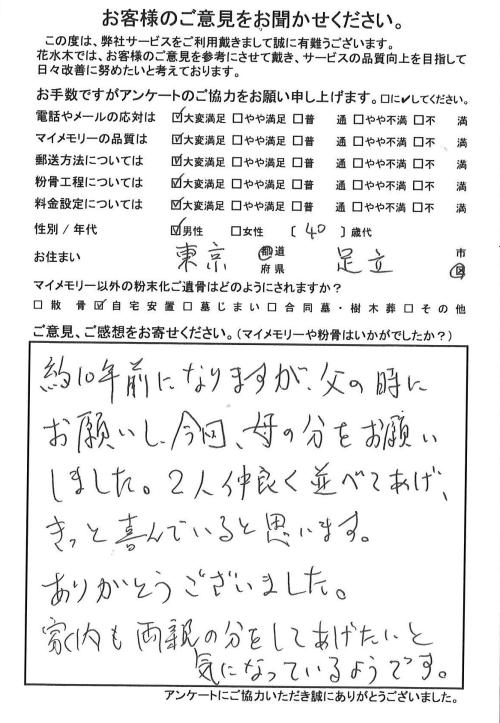 お客様のご意見をお聞かせください。
この度は、弊社サービスをご利用戴きまして誠に有難うございます。
花水木では、お客様のご意見を参考にさせて戴き、サービスの品質向上を目指して
日々改善に努めたいと考えております。
お手数ですがアンケートのご協力をお願い申し上げます。□に✔してください。
電話やメールの応対は ☑大変満足 □やや満足 □普 通 □やや不満 □不 満
マイメモリーの品質は ☑大変満足 □やや満足 □普 通 □やや不満 □不 満
郵送方法については ☑大変満足 □やや満足 □普 通 □やや不満 □不 満
粉骨工程については ☑大変満足 □やや満足 □普 通 □やや不満 □不 満
料金設定については ☑大変満足 □やや満足 □普 通 □やや不満 □不 満
性別 / 年代 ☑男性 □女性 [ 40 ] 歳代
お住まい 東京 都道府県 足立 市区
マイメモリー以外の粉末化ご遺骨はどのようにされますか？
□散骨 ☑自宅安置 □墓じまい □合同墓・樹木葬 □その他
ご意見、ご感想をお寄せください。(マイメモリーや粉骨はいかがでしたか？)
約10年前になりますが、父の時に
お願いし、今回、母の分をお願い
しました。2人仲良く並べてあげ、
きっと喜んでいると思います。
ありがとうございました。
家内も両親の分をしてあげたいと
気になっているようです。
アンケートにご協力いただき誠にありがとうございました。